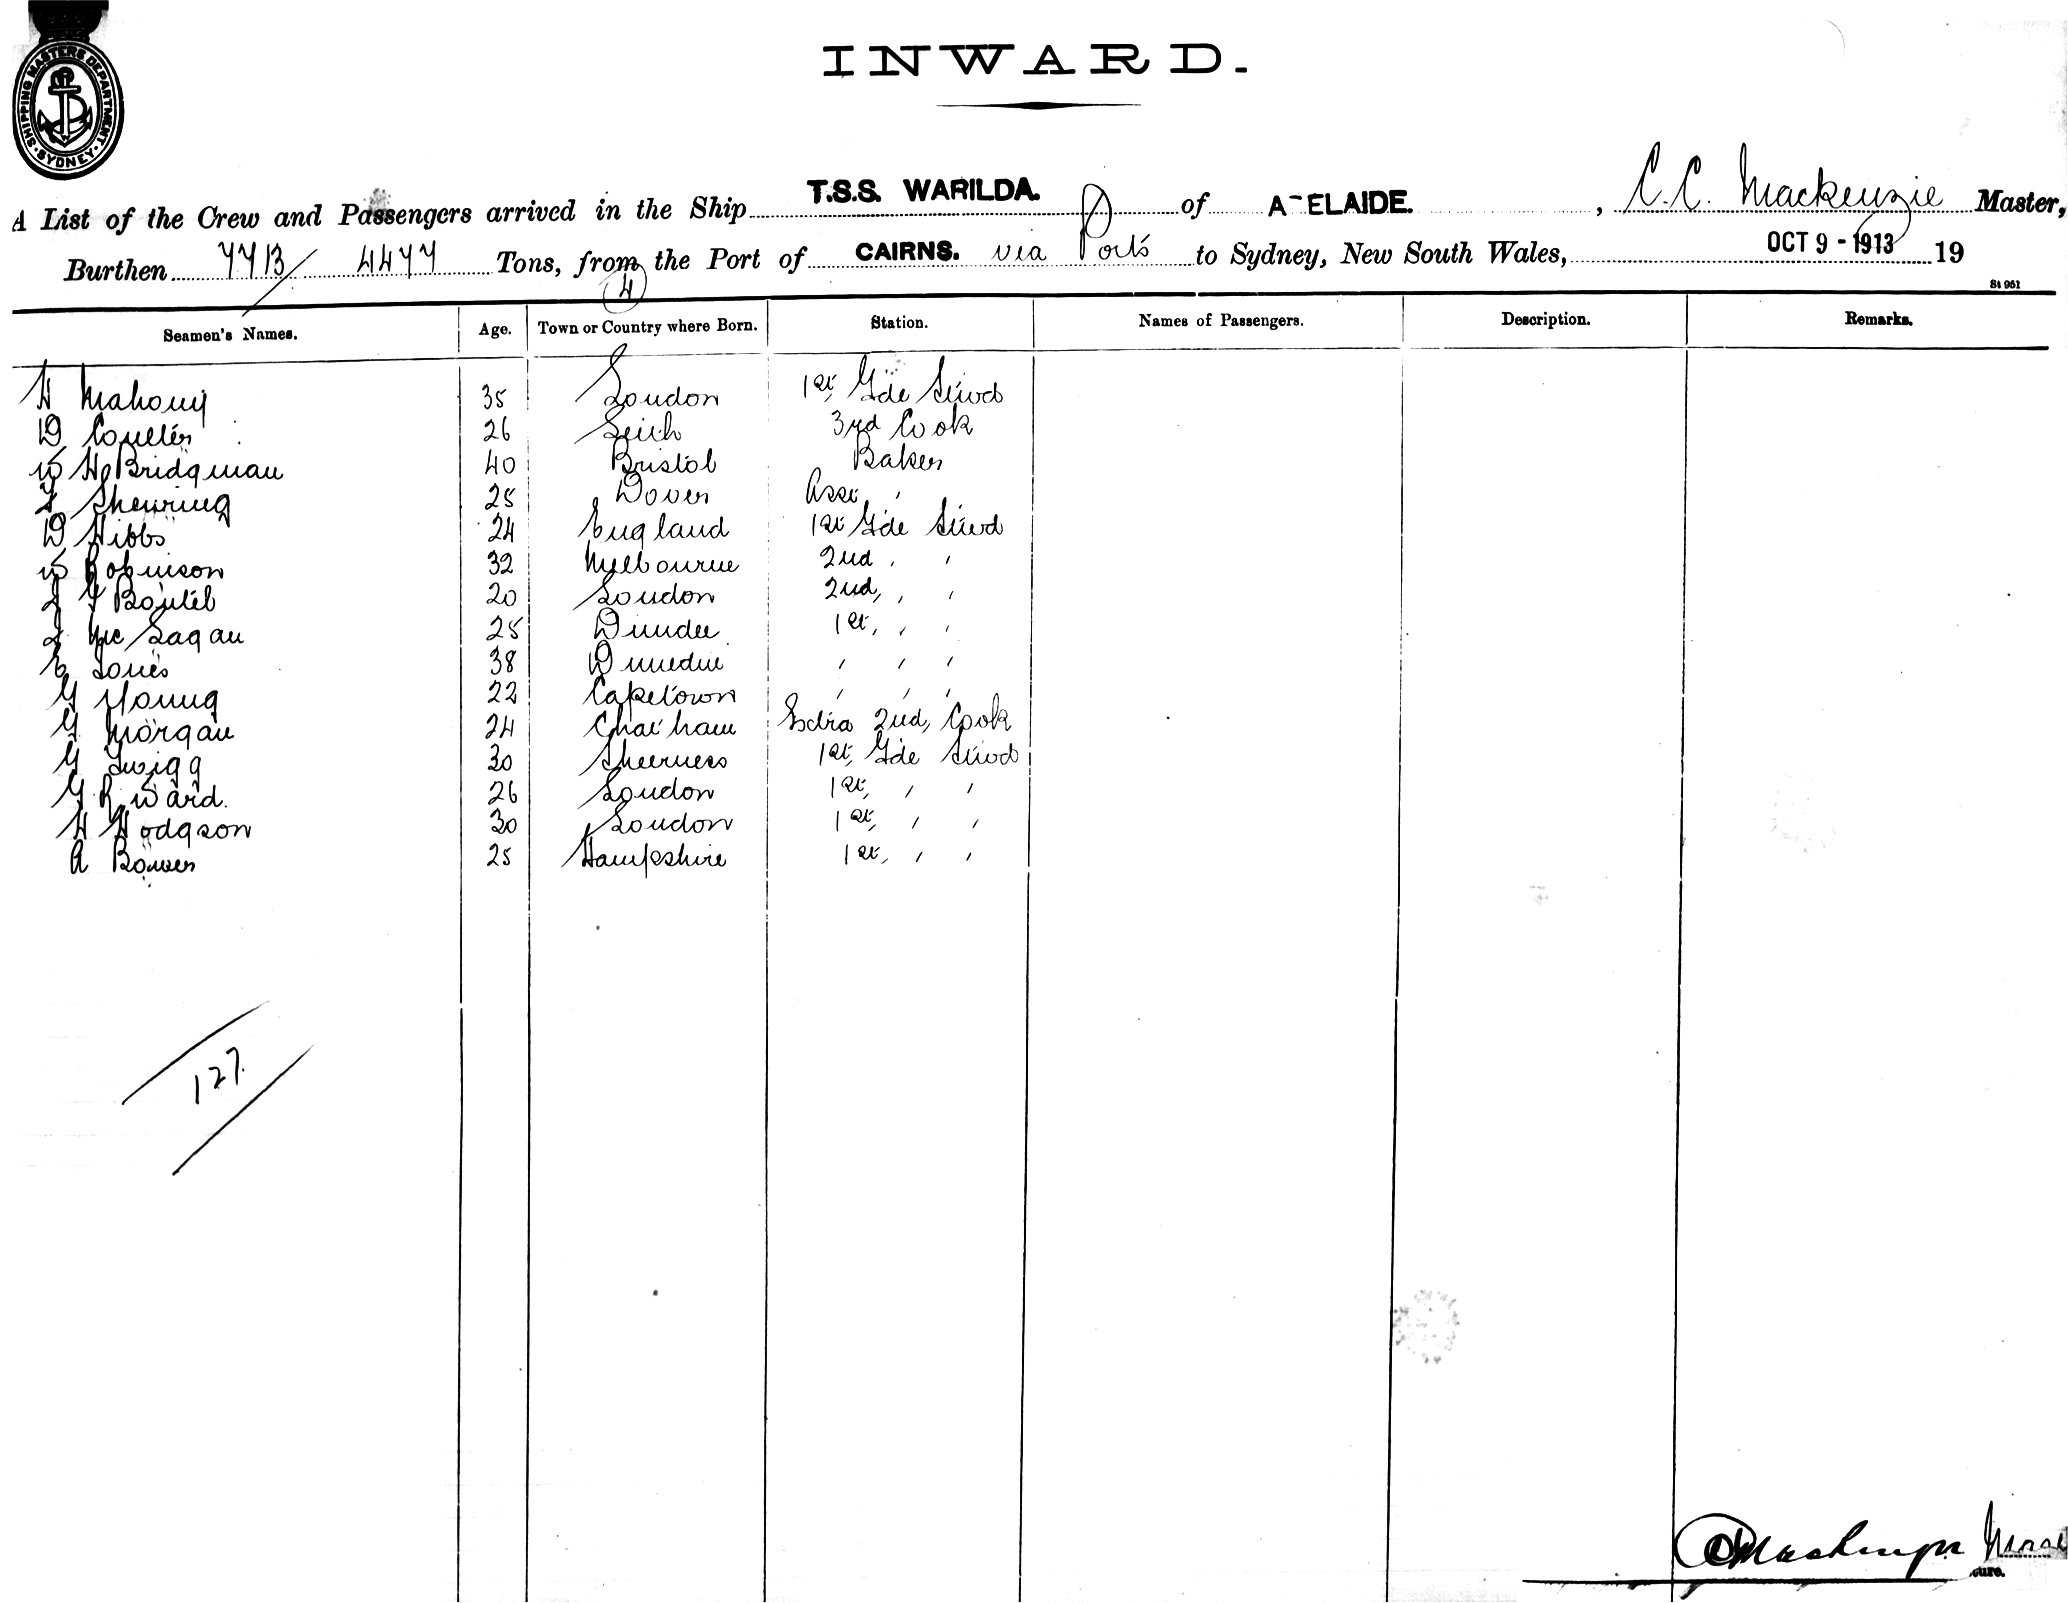 SHIPPING MASTERS DEPARTMENT
SYDNEY
INWARD.
A List of the Crew and Passengers arrived in the Ship T.S.S. WARILDA. of A ELAIDE. , C. C. Mackenzie Master,
Burthen 7713/ 4477 Tons, from the Port of CAIRNS. via Ports to Sydney, New South Wales, OCT 9 - 1913 19
4
St 951
Seamen's Names. Age. Town or Country where Born. Station. Names of Passengers. Description. Remarks.
H Mahony 35 London 1st, Gde Stwd
D Coulter 26 Leith 3rd Cook
W H Bridgman 40 Bristol Baker
Shewring 25 Dover Asst "
D Hibbs 24 England 1st Gde Stwd
W Robinson 32 Melbourne 2nd " "
Boutel 20 London 2nd, " "
Mc Lagan 25 Dundee 1st, " "
E Jones 38 Dunedin " " "
G Young 22 Capetown " " "
G Morgan 24 Chatham Extra 2nd, Cook
G Twigg 30 Sheerness 1st, Gde Stwd
G R Ward. 26 London 1st, " "
H Hodgson 30 London 1st, " "
A Bower 25 Hampshire 1st, " "
127.
Mackenzie